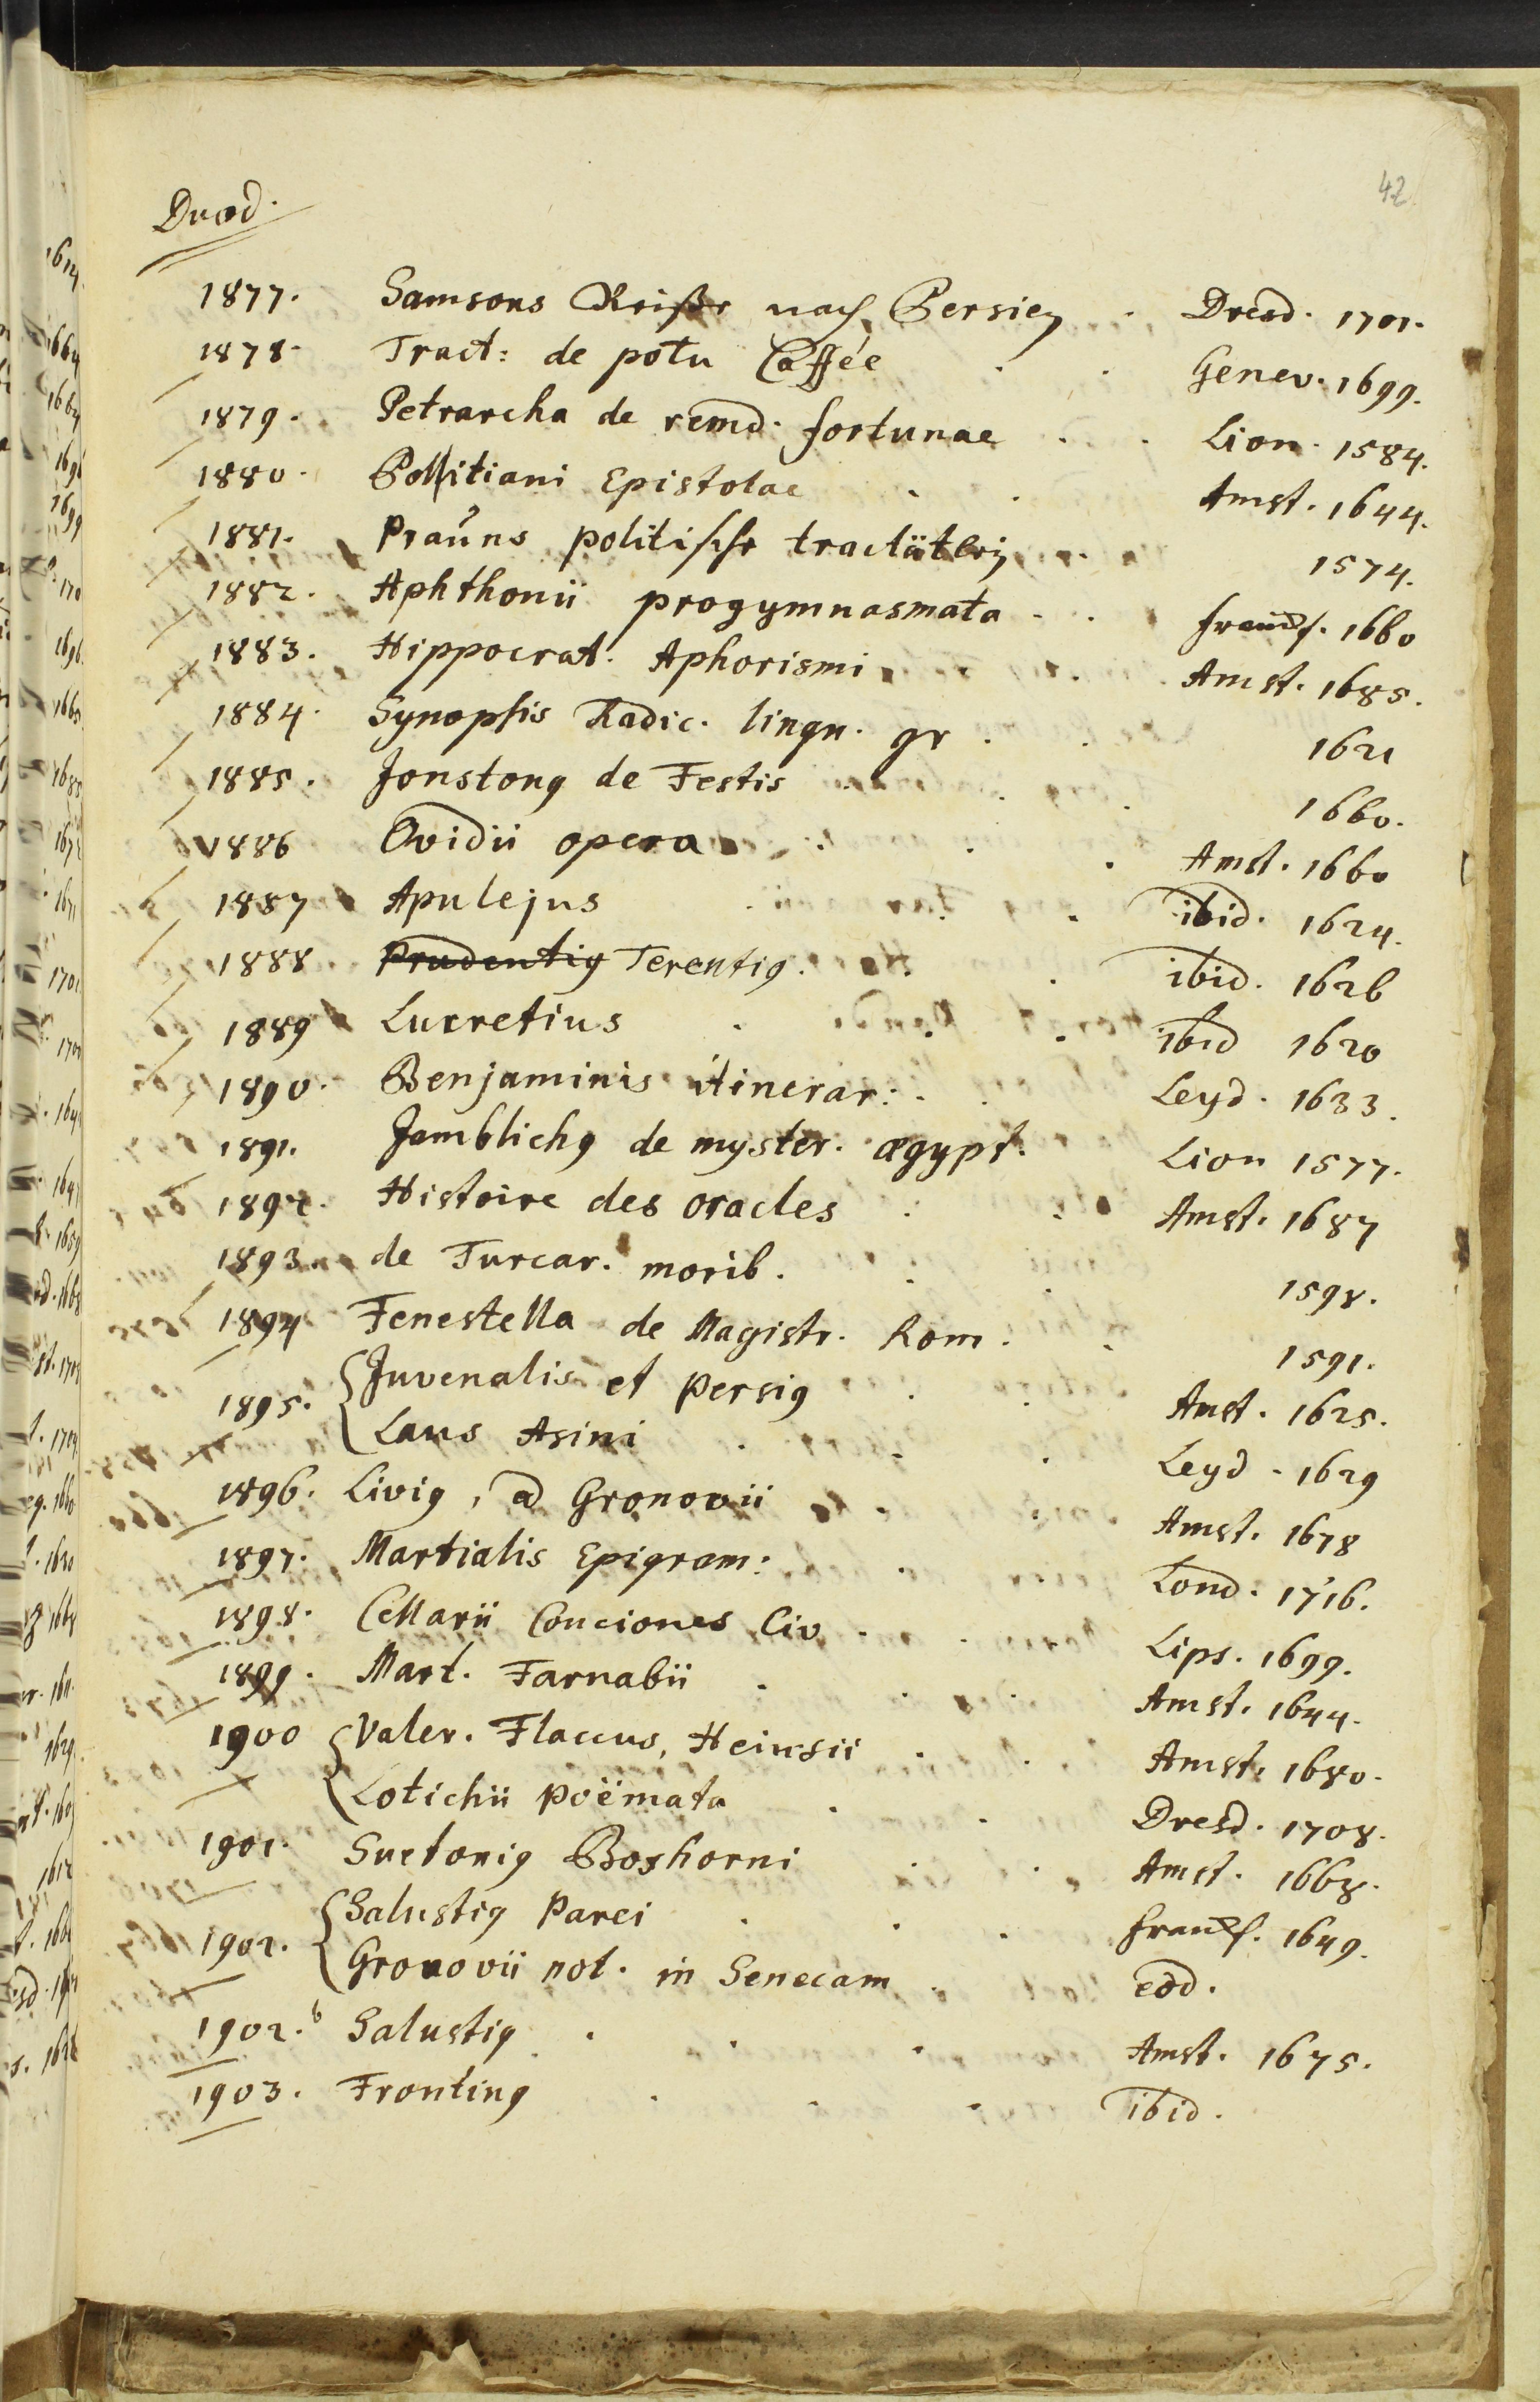 42
Duod.
1877. Samsons Reiße nach Persien . Dresd. 1701.
1878. Tract: de potu Caffée . . Genev. 1699.
1879. Petrarcha de remd. fortunae . . Lion. 1584.
1880. Politiani Epistolae . . Amst. 1644.
1881. Prauns politische tractätlein . . 1574.
1882. Aphthonii progymnasmata . . francf. 1660
1883. Hippocrat. Aphorismi . Amst. 1685.
1884. Synopsis Radic. lingu. gr . . 1621
1885. Jonstong de Festis . . . 1660.
1886 Ovidii opera . . . Amst. 1660
1887 Apulejus . . . ibid. 1624.
1888 ~~Prudentig~~ Terentig . . . ibid. 1626
1889 Lucretius . . . ibid 1620
1890. Benjaminis itinerar: . . Leyd. 1633.
1891. Jamblichg de myster. ægypt. Lion 1577.
1892. Histoire des oracles . . Amst. 1687
1893. de Turcar. morib. . . 1598.
1894 Fenestella de Magistr. Rom . . 1591.
1895. {Juvenalis et Persig . . Amst. 1625.
Laus Asini . . . Leyd. 1629
1896. Livig, ad Gronovii . . Amst. 1678
1897. Martialis Epigram: . Lond. 1716.
1898. Cellarii Conciones Civ . . Lips. 1699.
1899. Mart. Farnabii . . . Amst. 1644.
1900 {Valer. Flaccus, Heinsii . . Amst. 1680.
Lotichii Poëmata . . Dresd. 1708.
1901. Suetonig Boxhorni . . Amst. 1668.
1902. {Salustig Parei . . . francf. 1649.
Gronovii not. in Senecam . eod.
1902.b Salustig . . . Amst. 1675.
1903. Fronting . . . ibid.